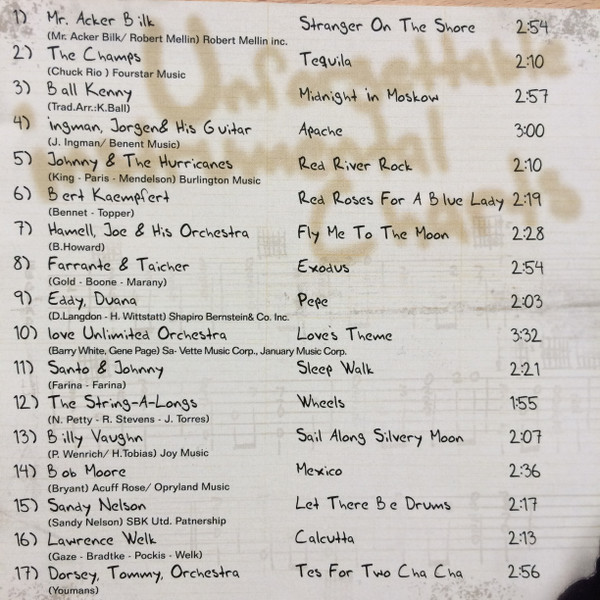 Unforgettable
Instrumental
Classics
1) Mr. Acker Bilk Stranger On The Shore 2:54
(Mr. Acker Bilk/ Robert Mellin) Robert Mellin inc.
2) The Champs Tequila 2:10
(Chuck Rio ) Fourstar Music
3) Ball Kenny Midnight in Moskow 2:57
(Trad.Arr.:K.Ball)
4) ingman, Jorgen& His Guitar Apache 3:00
(J. Ingman/ Benent Music)
5) Johnny & The Hurricanes Red River Rock 2:10
(King - Paris - Mendelson) Burlington Music
6) Bert Kaempfert Red Roses For A Blue Lady 2:19
(Bennet - Topper)
7) Hamell, Joe & His Orchestra Fly Me To The Moon 2:28
(B.Howard)
8) Farrante & Taicher Exodus 2:54
(Gold - Boone - Marany)
9) Eddy, Duana Pepe 2:03
(D.Langdon - H. Wittstatt) Shapiro Bernstein& Co. Inc.
10) love Unlimited Orchestra Love's Theme 3:32
(Barry White, Gene Page) Sa- Vette Music Corp., January Music Corp.
11) Santo & Johnny Sleep Walk 2:21
(Farina - Farina)
12) The String-A-Longs Wheels 1:55
(N. Petty - R. Stevens - J. Torres)
13) Billy Vaughn Sail Along Silvery Moon 2:07
(P. Wenrich/ H.Tobias) Joy Music
14) Bob Moore Mexico 2:36
(Bryant) Acuff Rose/ Opryland Music
15) Sandy Nelson Let There Be Drums 2:17
(Sandy Nelson) SBK Utd. Patnership
16) Lawrence Welk Calcutta 2:13
(Gaze - Bradtke - Pockis - Welk)
17) Dorsey, Tommy, Orchestra Tes For Two Cha Cha 2:56
(Youmans)